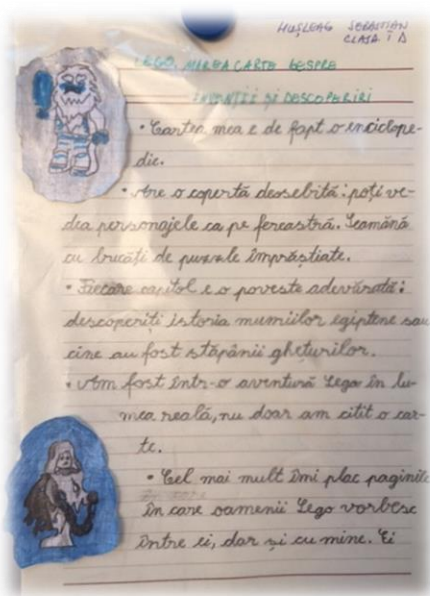 HUȘLEAG SEBASTIAN
CLASA I D
LEGO, MAREA CARTE DESPRE
INVENȚII ȘI DESCOPERIRI
• Cartea mea e de fapt o enciclope-
die.
• Are o copertă deosebită: poți ve-
dea personajele ca pe fereastră. Seamănă
cu bucăți de puzzle împrăștiate.
• Fiecare capitol e o poveste adevărată:
descoperiți istoria mumiilor egiptene sau
cine au fost stăpânii ghețurilor.
• Am fost într-o aventură Lego în lu-
mea reală, nu doar am citit o car-
te.
• Cel mai mult îmi plac paginile
în care oamenii Lego vorbesc
între ei, dar și cu mine. Ei